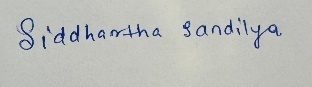 Siddhartha Sandilya